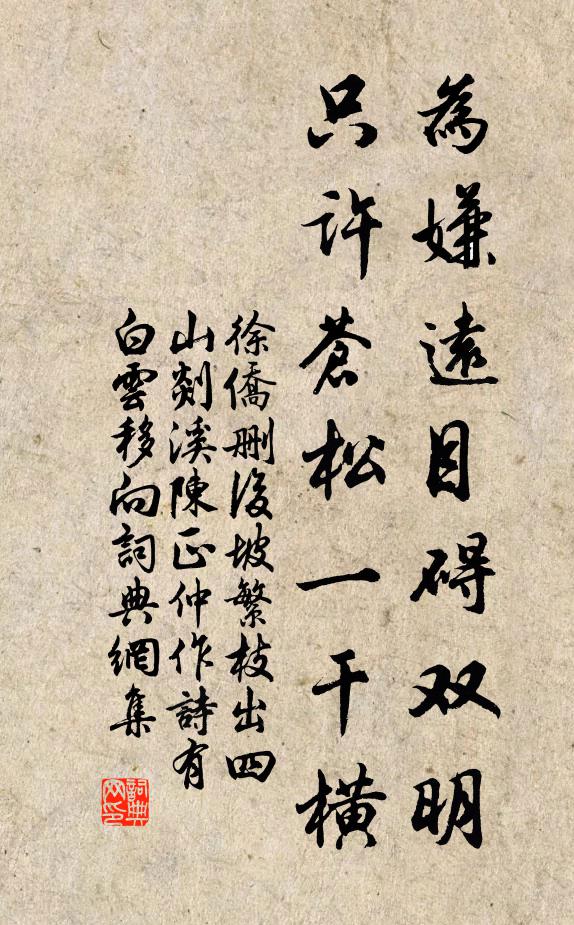 為嫌遠目碍双明
只許蒼松一干橫
徐僑刪後坡繁枝出四
山剡溪陳正仲作詩有
白雲移向詞典網集
詞典網印